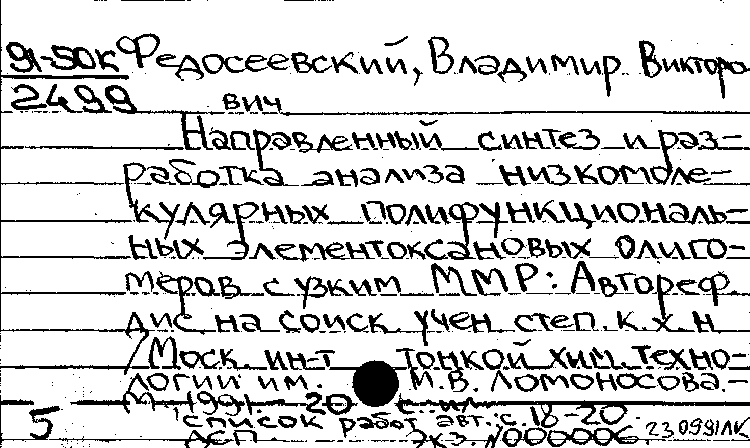 91-50к Федосеевский, Владимир Викторо
2499 вич
Направленный синтез и раз-
работка анализа низкомоле-
кулярных полифункциональ-
ных элементоксановых олиго-
меров с узким ММР: Автореф.
дис. на соиск. учен. степ. к.х.н
/Моск. ин-т тонкой хим. техно-
логии им. М.В. Ломоносова.-
М., 1991.- 20 с. ил
5 Список работ авт.: с. 18-20.
ДСП. Экз. N000006. 230991ЛК